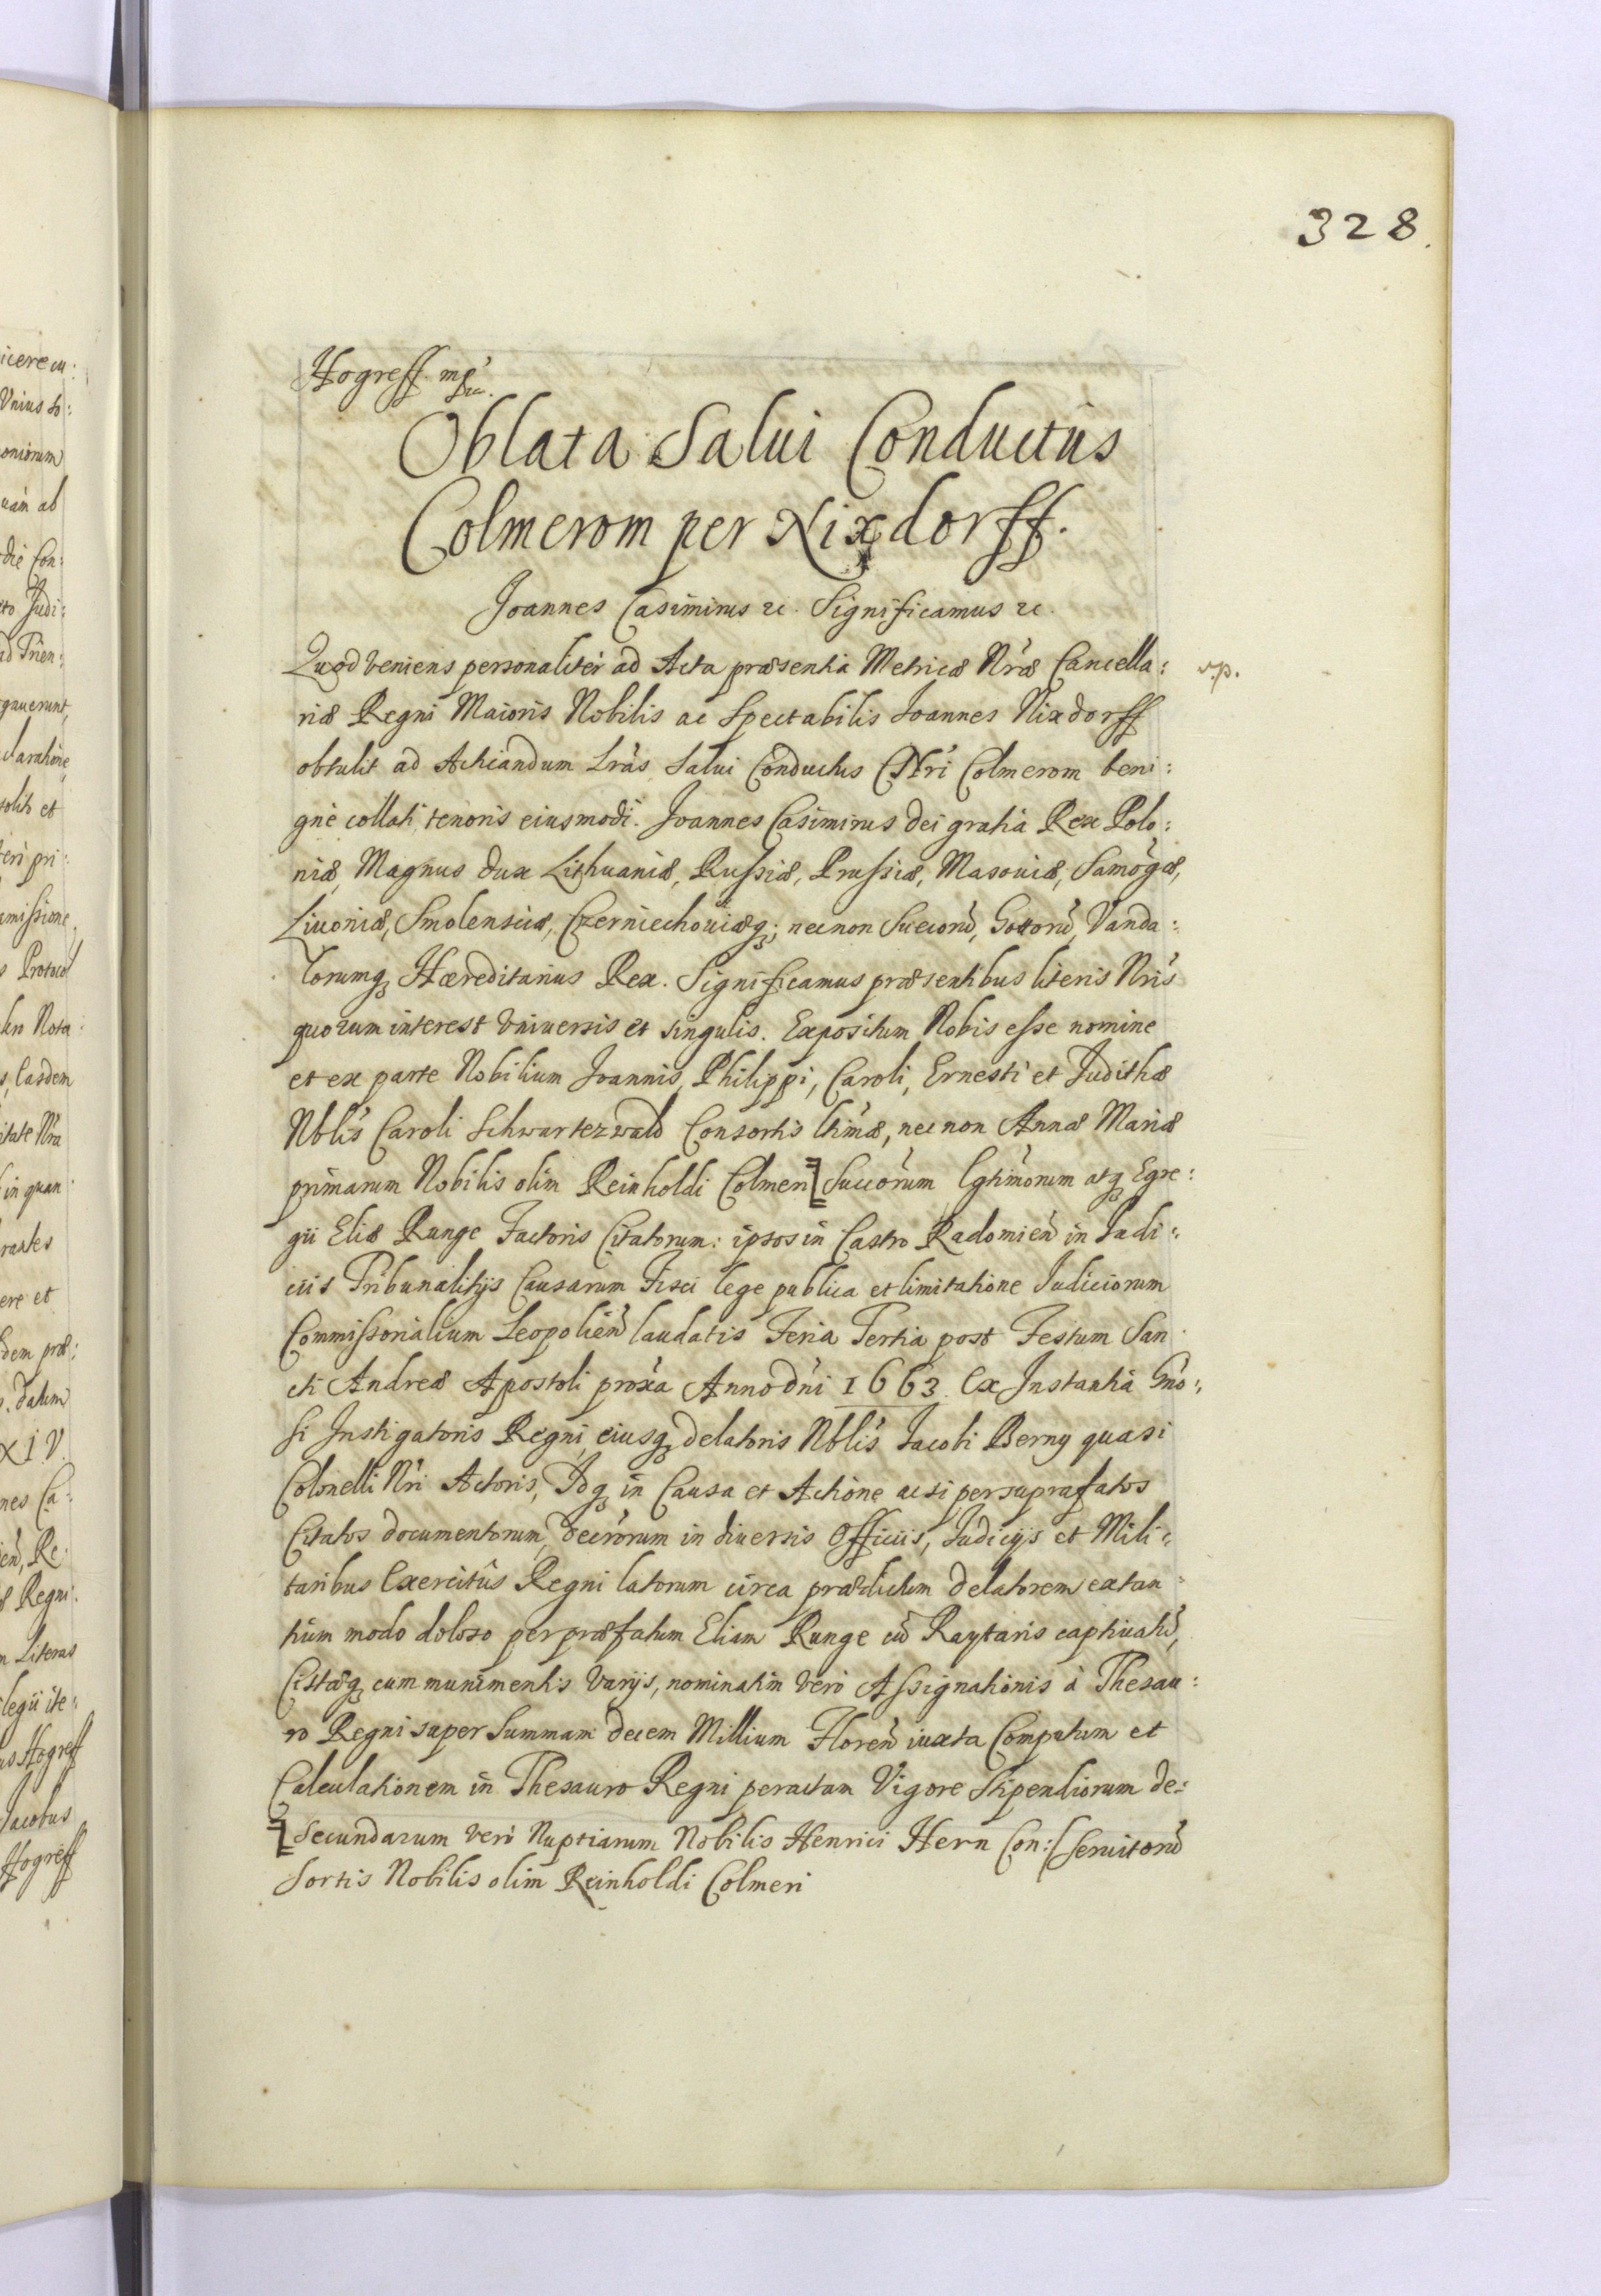 328.
Hogreff mp
Oblata Salui Conductûs
Colmerom per Nixdorff.
Joannes Casimirus etc. Significamus etc.
Quod veniens personaliter ad Acta præsentia Metricæ Nræ Cancella: v.p.
riæ Regni Maioris Nobilis ac Spectabilis Joannes Nixdorff
obtulit ad Acticandum Lras Salui Conductus Nri Colmerom beni:
gnè collati, tenoris eiusmodi. Joannes Casimirus Dei gratia Rex Polo:
niæ, Magnus Dux Lithuaniæ, Russiæ, Prussiæ, Masouiæ, Samogæ,
Liuoniæ, Smolensciæ, Czerniechouiæq; nec non Suecorũ, Gottorũ, Vanda:
lorumq; Hæreditarius Rex. Significamus præsentibus literis Nris
quorum interest Vniuersis et singulis. Expositum Nobis esse nomine
et ex parte Nobilium Joannis, Philippi, Caroli, Ernesti et Judithæ
Nblis Caroli Schwartezwald Consortis ltimæ, nec non Annæ Mariæ
primarum Nobilis olim Reinholdi Colmeri Succorum lgtimorum atq; Egre:
gii Eliæ Runge Factoris Citatorum: ipsos in Castro Radomien̄ in Judi:
ciis Tribunalitijs Causarum Fisci lege publica et limitatione Judiciorum
Commissorialium Leopolien̄ laudatis Feria Tertia post Festum San
cti Andreæ Apostoli proxa Anno Dni 1663. Ex Instantia Gno:
si Instigatoris Regni, eiusq; delatoris Nblis Jacobi Berny quasi
Colonelli Nri Actoris, Idq; in Causa et Actione acsi per suprafatos
Citatos documentorum, decrorum in diuersis Officiis, Judicijs et Mili:
taribus Exercitûs Regni latorum circa prædictum delatorem extan:
tium modo doloso per præfatum Eliam Runge cũ Raytaris captiuatũ,
Cistæq; cum munimentis varijs, nominatim verò Assignationis à Thesau:
ro Regni super Summam decem Millium Floren̄ iuxta Computum et
Calculationem in Thesauro Regni peractam Vigore Stipendiorum de:
Secundarum verò Nuptiarum Nobilis Henrici Hern Con: seruitorũ
sortis Nobilis olim Reinholdi Colmeri